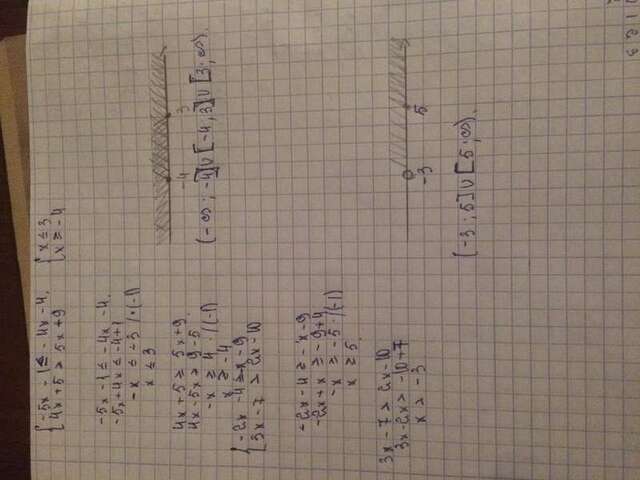 {-5x - 1 ≤ -4x - 4.
{4x + 5 > 5x + 9
{x ≤ 3
{x ≥ -4
-5x - 1 ≤ -4x - 4.
-5x + 4x ≤ -4 + 1
-x ≤ -3 /·(-1)
x ≤ 3
4x + 5 ≥ 5x + 9
4x - 5x ≥ 9 - 5
-x ≥ 4 ·/(-1)
x ≥ -4
-4 3
(-∞; -4] U [-4; 3] U [3; ∞).
{-2x - 4 ≥ -x - 9
{3x - 7 > 2x - 10
-2x - 4 ≥ -x - 9
-2x + x ≥ -9 + 4
-x ≥ -5 ·/(-1)
x ≥ 5.
3x - 7 > 2x - 10
3x - 2x > -10 + 7
x > -3
-3 5
[-3; 5] U [5; ∞).